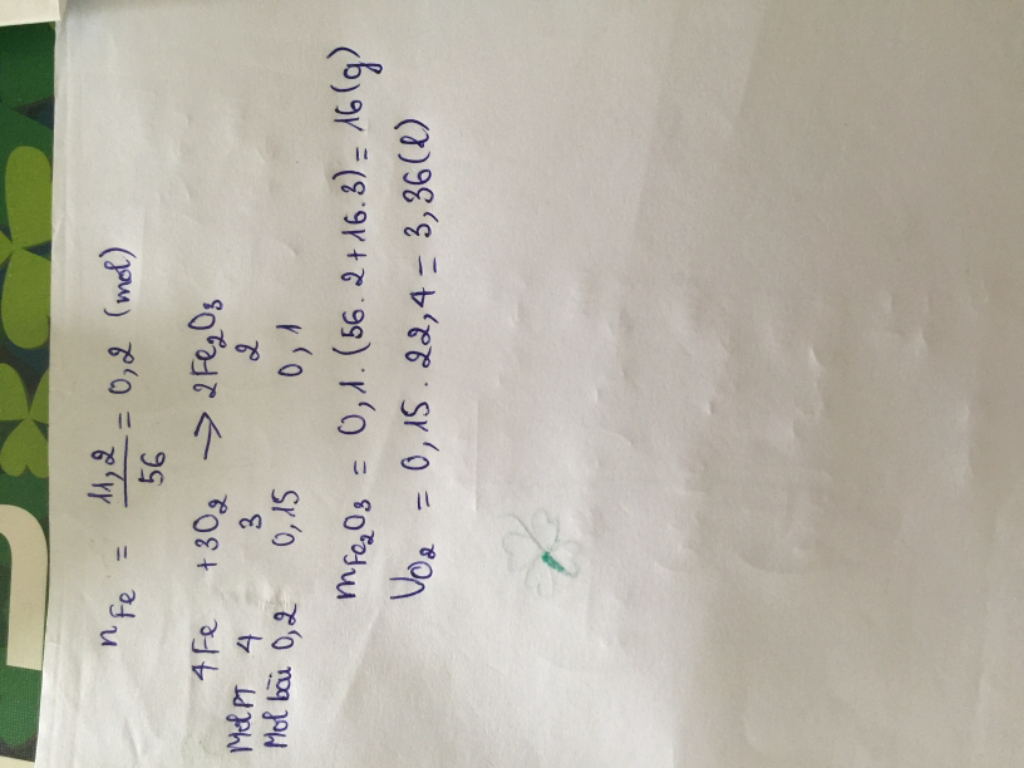 nFe = 11,2/56 = 0,2 (mol)
4Fe + 3O₂ → 2Fe₂O₃
Mol PT 4 3 2
Mol bài 0,2 0,15 0,1
mFe₂O₃ = 0,1.(56.2+16.3) = 16(g)
VO₂ = 0,15.22,4 = 3,36(l)